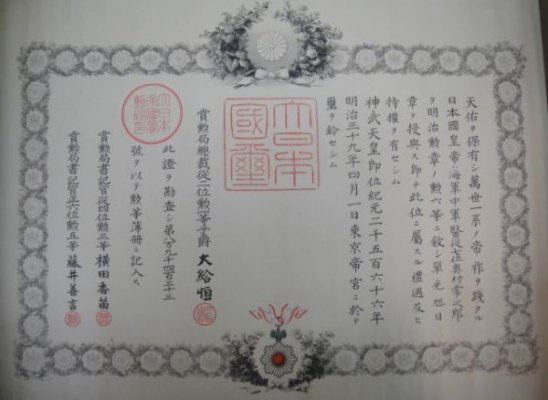 天佑ヲ保有シ萬世一系ノ帝祚ヲ踐タル
日本國皇帝ハ海軍中軍醫從七位奥村常次郎
ヲ明治勲章ノ勲六等ニ敍シ單光旭日
章ヲ授與ス即チ此位ニ屬スル禮遇及ヒ
特權ヲ有セシム
神武天皇即位紀元二千五百六十六年
明治三十九年四月一日東京帝宮ニ於テ
璽ヲ鈐セシム
大日本
國璽
賞勲局總裁從二位勲一等子爵 大給恒
此證ヲ勘査シ第八万九千四百三十三
號ヲ以テ勲等簿册ニ記入ス
賞勲局書記官從四位勲三等 横田香苗
賞勲局書記官正六位勲五等 藤井善言